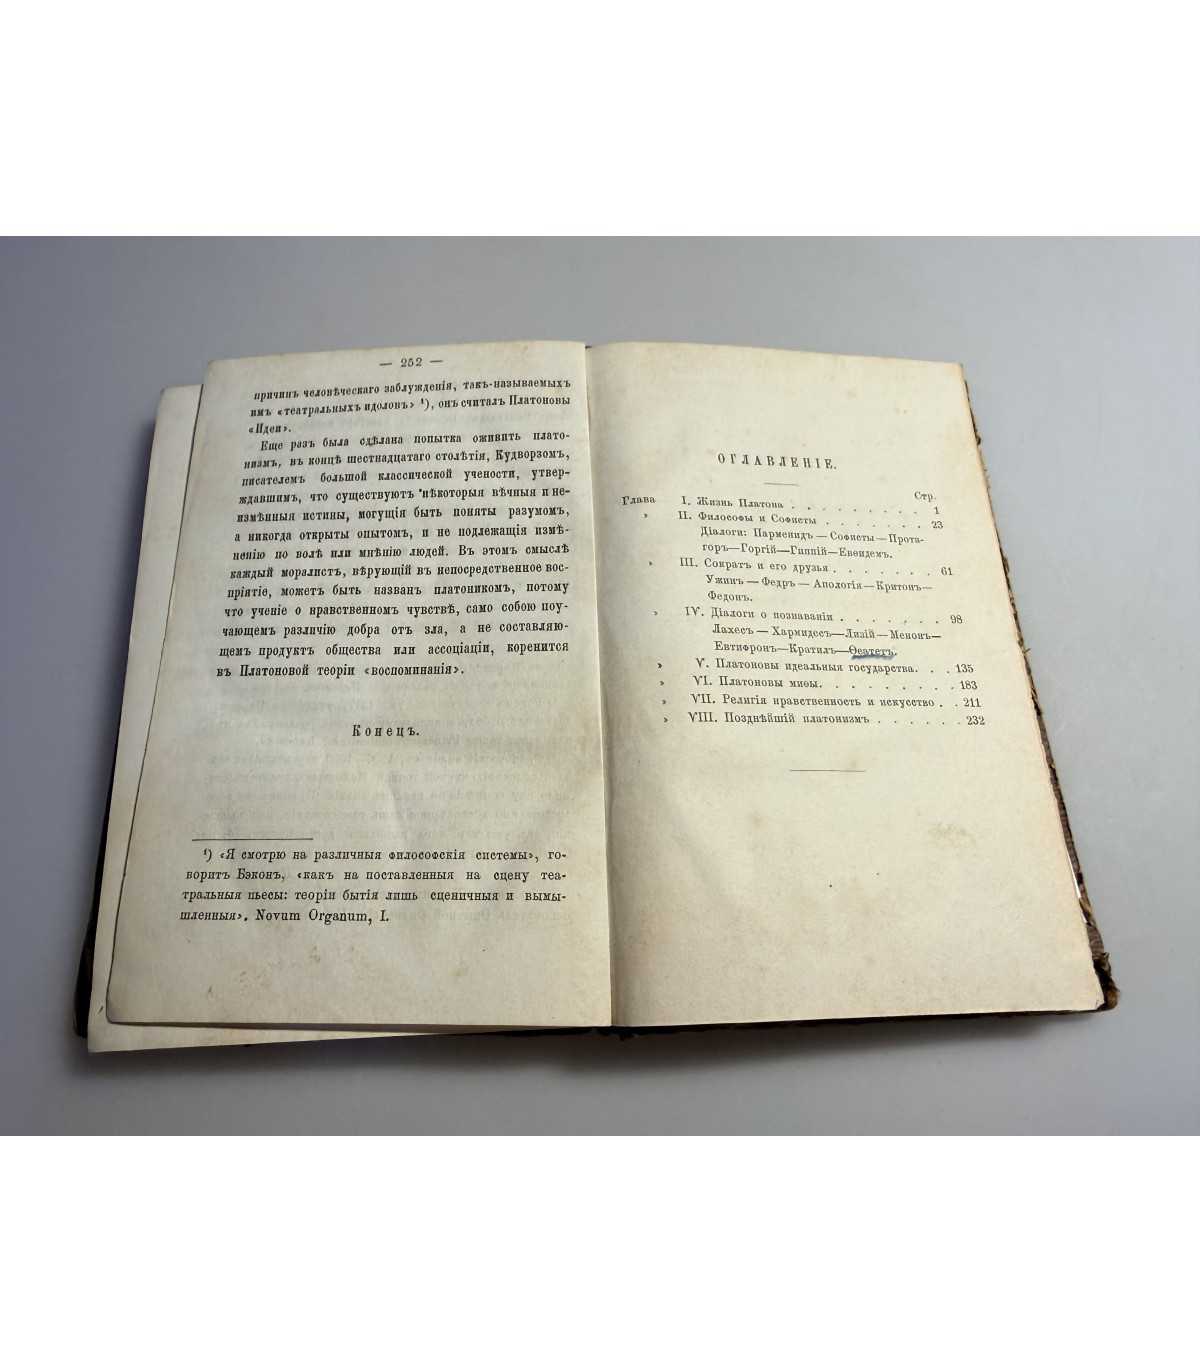 — 252 —
причинъ человѣческаго заблужденія, такъ-называемыхъ
имъ «театральныхъ идоловъ» ¹), онъ считалъ Платоновы
«Идеи».
Еще разъ была сдѣлана попытка оживить плато-
низмъ, въ концѣ шестнадцатаго столѣтія, Кудворзомъ,
писателемъ большой классической учености, утвер-
ждавшимъ, что существуютъ нѣкоторыя вѣчныя и не-
измѣнныя истины, могущія быть поняты разумомъ,
а никогда открыты опытомъ, и не подлежащія измѣ-
ненію по волѣ или мнѣнію людей. Въ этомъ смыслѣ
каждый моралистъ, вѣрующій въ непосредственное вос-
пріятіе, можетъ быть названъ платоникомъ, потому
что ученіе о нравственномъ чувствѣ, само собою поу-
чающемъ различію добра отъ зла, а не составляю-
щемъ продуктъ общества или ассоціаціи, коренится
въ Платоновой теоріи «воспоминанія».
Конецъ.
¹) «Я смотрю на различныя философскія системы», го-
воритъ Бэконъ, «какъ на поставленныя на сцену теа-
тральныя пьесы: теоріи бытія лишь сценичныя и вымы-
шленныя». Novum Organum, I.
ОГЛАВЛЕНІЕ.
Стр.
Глава I. Жизнь Платона . . . . . . . . . 1
» II. Философы и Софисты . . . . . . . 23
Діалоги: Парменидъ—Софисты—Прота-
горъ—Горгій—Гиппій—Евѳидемъ.
» III. Сократъ и его друзья . . . . . . . 61
Ужинъ—Федръ—Апологія—Критонъ—
Федонъ.
» IV. Діалоги о познаваніи . . . . . . . 98
Лахесъ—Хармидесъ—Лизій—Менонъ—
Евтифронъ—Кратилъ—Ѳеатетъ.
» V. Платоновы идеальныя государства. . . 135
» VI. Платоновы миѳы. . . . . . . . . 183
» VII. Религія нравственность и искусство . . 211
» VIII. Позднѣйшій платонизмъ . . . . . . 232